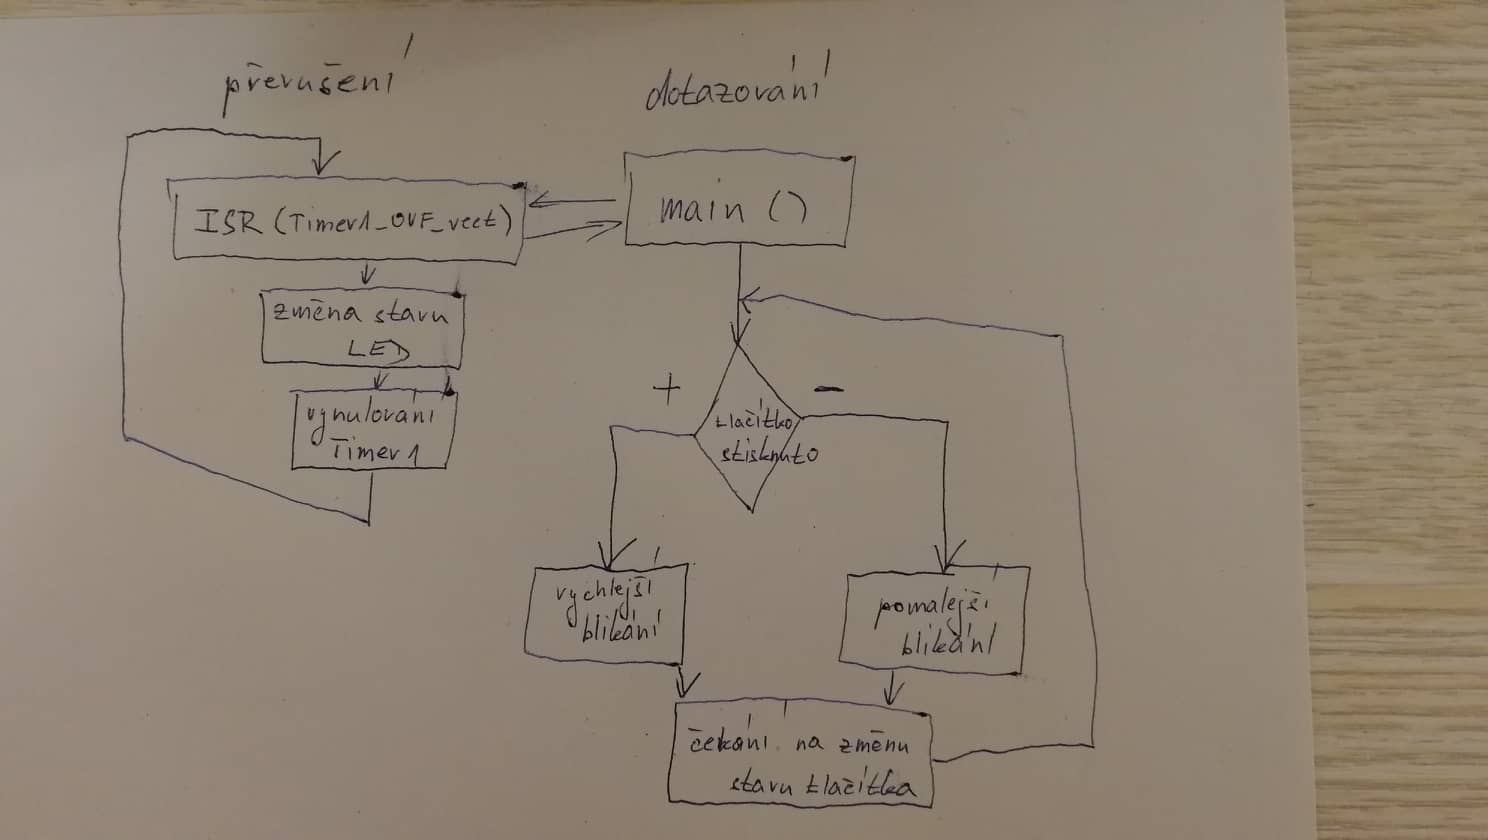 přerušení
dotazování
ISR (Timer1_OVF_vect)
main ()
změna stavu
LED
vynulování
Timer1
+
-
tlačítko
stisknuto
rychlejší
blikání
pomalejší
blikání
čekání na změnu
stavu tlačítka